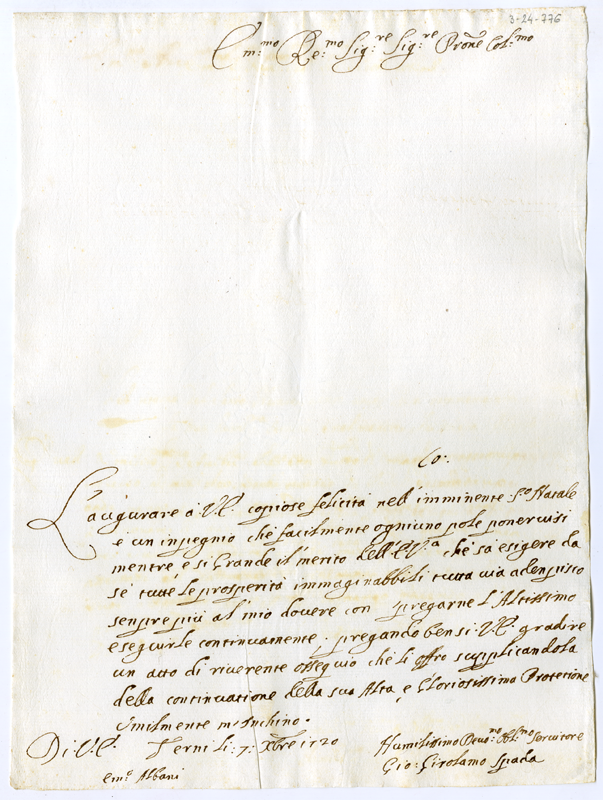 3-24-776
Em:mo Re:mo Sig:re Sig:re Prone Col:mo
Co:
L'augurare à V.E. copiose felicità nell'imminente S.o Natale
è un inpegnio che facilmente ogniuno pole ponervisi
mentre è si Grande il merito dell'E.V.a che sà esigere da
se tutte le prosperità immaginabbili tutta via adenpisco
senpre più al mio dovere con pregarne l'Altissimo
eseguirle continuamente. pregando bensi V.E. gradire
un atto di riverente ossequio che li offro supplicandola
della continuatione della sua Alta, e Gloriosissima Protetione
Umilmente m'Inchino.
Di: V.E. Terni li: 7: Xbre 1720
Humilissimo Devo:mo Obl:mo Servitore
em:o Albani
Gio: Girolamo Spada